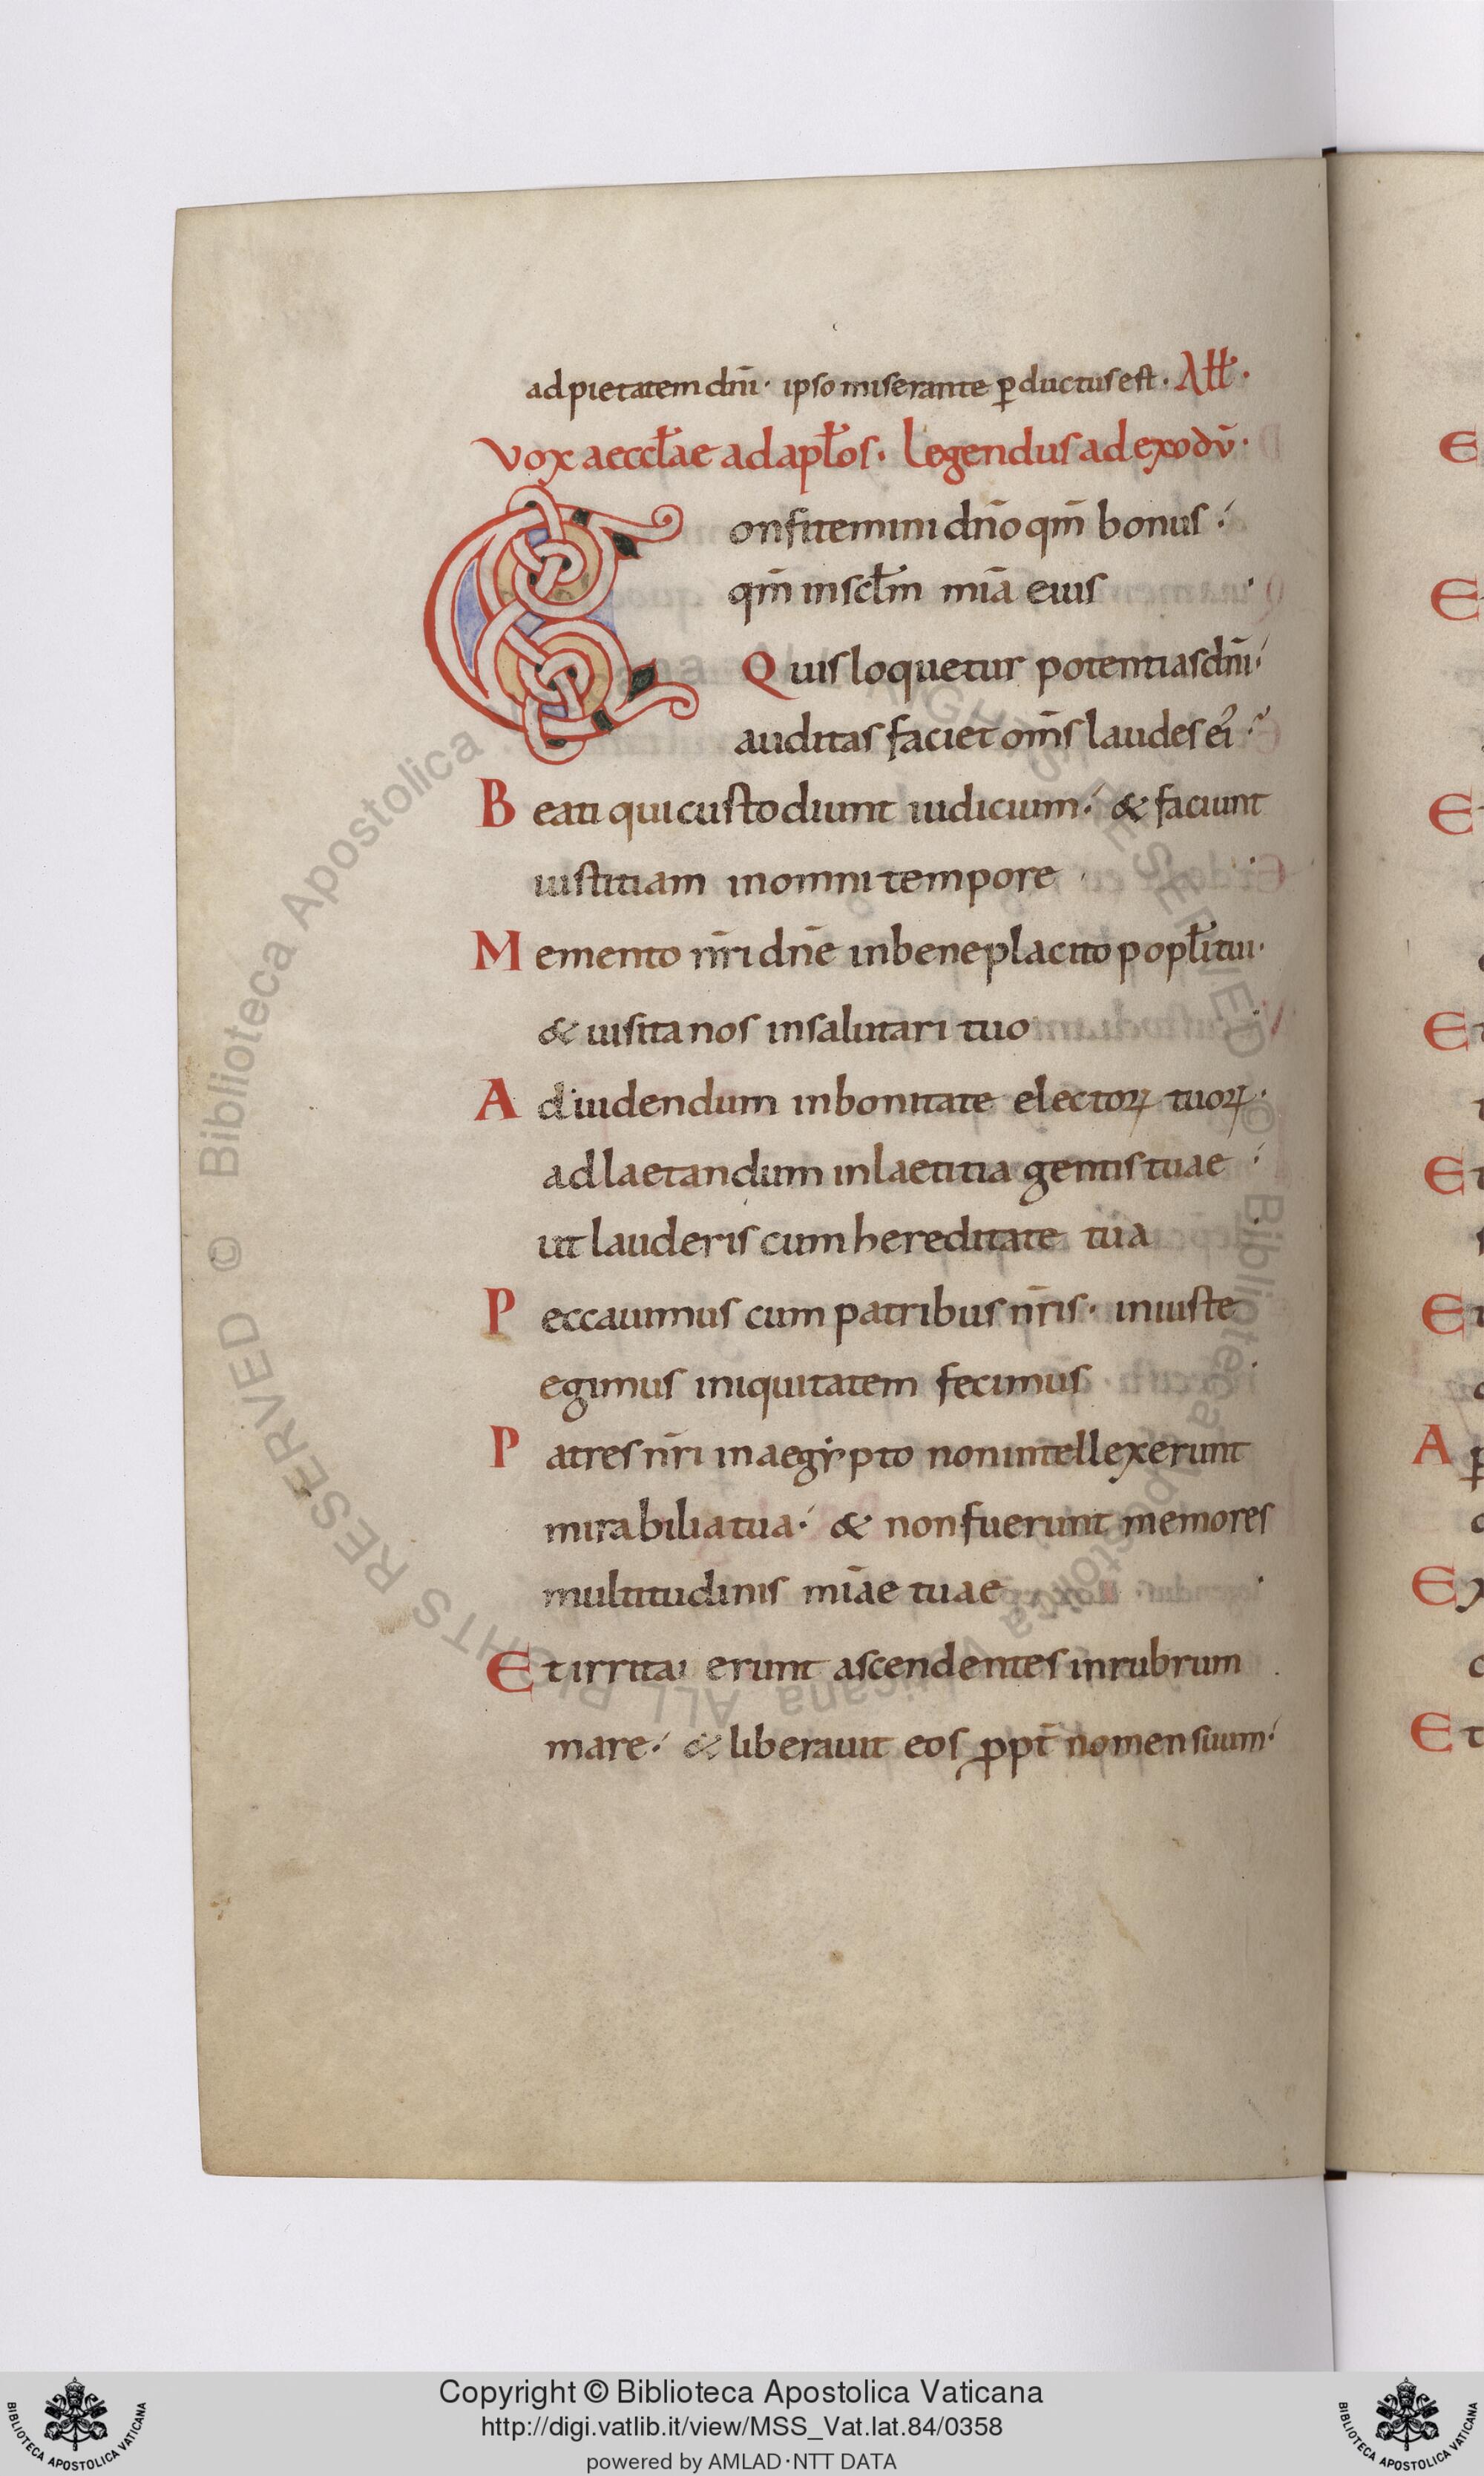 ad pietatem dn̄i · ipso miserante ꝑductus est · Aƚƚ ·
Vox aeccƚae ad apƚos · Legendus ad exodū ·
Confitemini dn̄o qm̄ bonus ·
qm̄ in scƚm mīa eius
Quis loquetur potentias dn̄i
auditas faciet om̄s laudes ei᾿
Beati qui custodiunt iudicium · & faciunt
iustitiam in omni tempore
Memento nr̄i dn̄e in beneplacito popƚi tui ·
& uisita nos in salutari tuo
Ad iudendum in bonitate electoꝝ tuoꝝ ·
ad laetandum in laetitia gentis tuae
ut lauderis cum hereditate tua
Peccauimus cum patribus nr̄is · iniuste
egimus iniquitatem fecimus
Patres nr̄i in aegẏpto non intellexerunt
mirabilia tua · & non fuerunt memores
multitudinis mīae tuae
Et irritai erunt ascendentes in rubrum
mare · & liberauit eos ꝓpt̄ nomen suum ·
E
E
E
Et
Et
Et
A
Ex
Et
© Biblioteca Apostolica Vaticana ALL RIGHTS RESERVED © Biblioteca Apostolica Vaticana ALL RIGHTS RESERVED
BIBLIOTECA APOSTOLICA VATICANA
Copyright © Biblioteca Apostolica Vaticana
http://digi.vatlib.it/view/MSS_Vat.lat.84/0358
powered by AMLAD·NTT DATA
BIBLIOTECA APOSTOLICA VATICANA